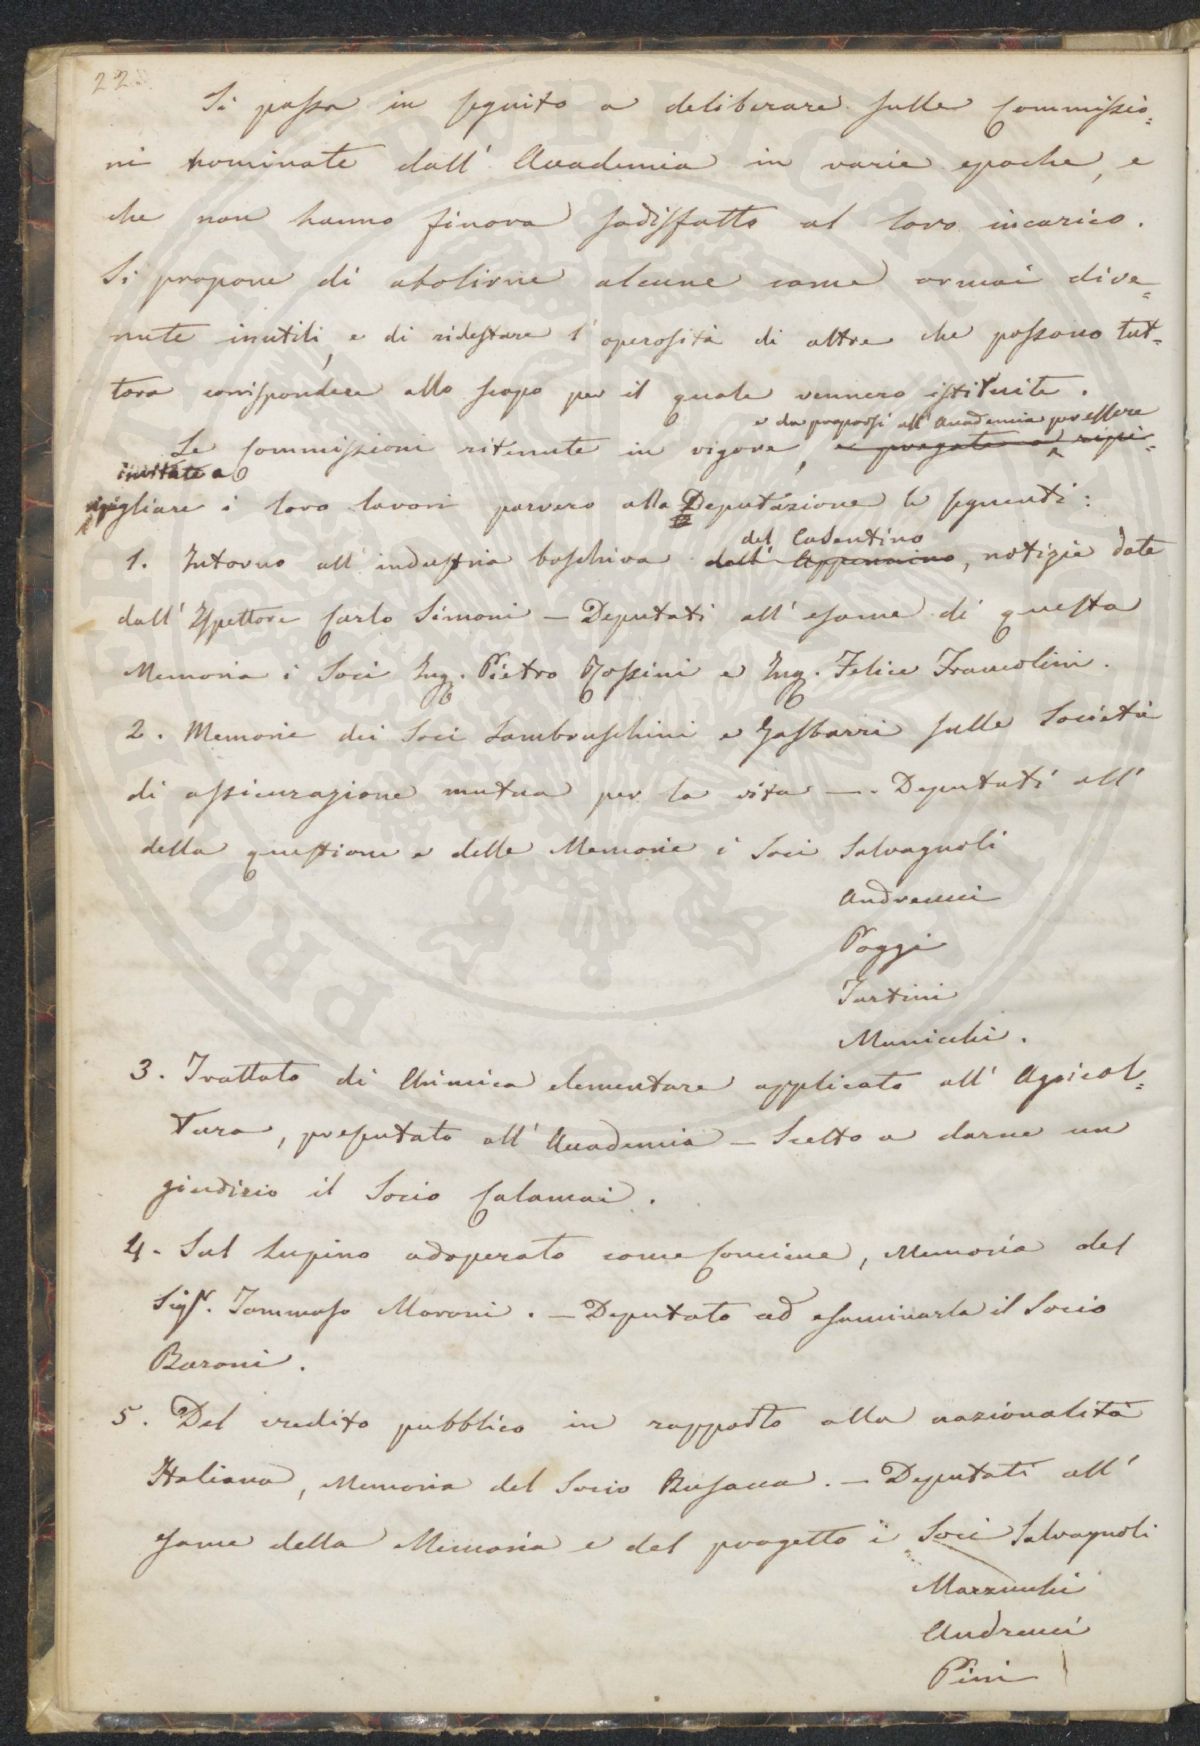 22
Si passa in seguito a deliberare sulle Commissio=
ni nominate dall' Accademia in varie epoche, e
che non hanno finora sadisfatto al loro incarico.
Si propone di abolirne alcune come ormai dive=
nute inutili, e di ridestare l'operosità di altre che possono tut=
tora corrispondere allo scopo per il quale vennero istituite.
e da proporsi all'Accademia per essere
Le Commissioni ritenute in vigore, e pregate a ripi=
invitate a
ripigliare i loro lavori parvero alla Deputazione le seguenti:
del Casentino
1. Intorno all'industria boschiva dall' Appennino, notizie date
dall'Ispettore Carlo Simoni — Deputati all'esame di questa
Memoria i Soci Ing. Pietro Rossini e Ing. Felice Francolini.
2. Memorie dei Soci Lambruschini e Gasbarri sulle Società
di assicurazione mutua per la vita —. Deputati all'
della questione e delle Memorie i Soci Salvagnoli
Andreucci
Poggi
Tartini
Municchi.
3. Trattato di Chimica elementare applicato all' Agricol=
tura, presentato all' Accademia — Scelto a darne un
giudizio il Socio Calamai.
4. Sul Lupino adoperato come Concime, Memoria del
Sigr. Tommaso Moroni. — Deputato ad esaminarla il Socio
Baroni.
5. Del credito pubblico in rapporto alla nazionalità
Italiana, Memoria del Socio Busacca. — Deputati all'
esame della Memoria e del progetto i Soci Salvagnoli
Marzucchi
Andreucci
Pini